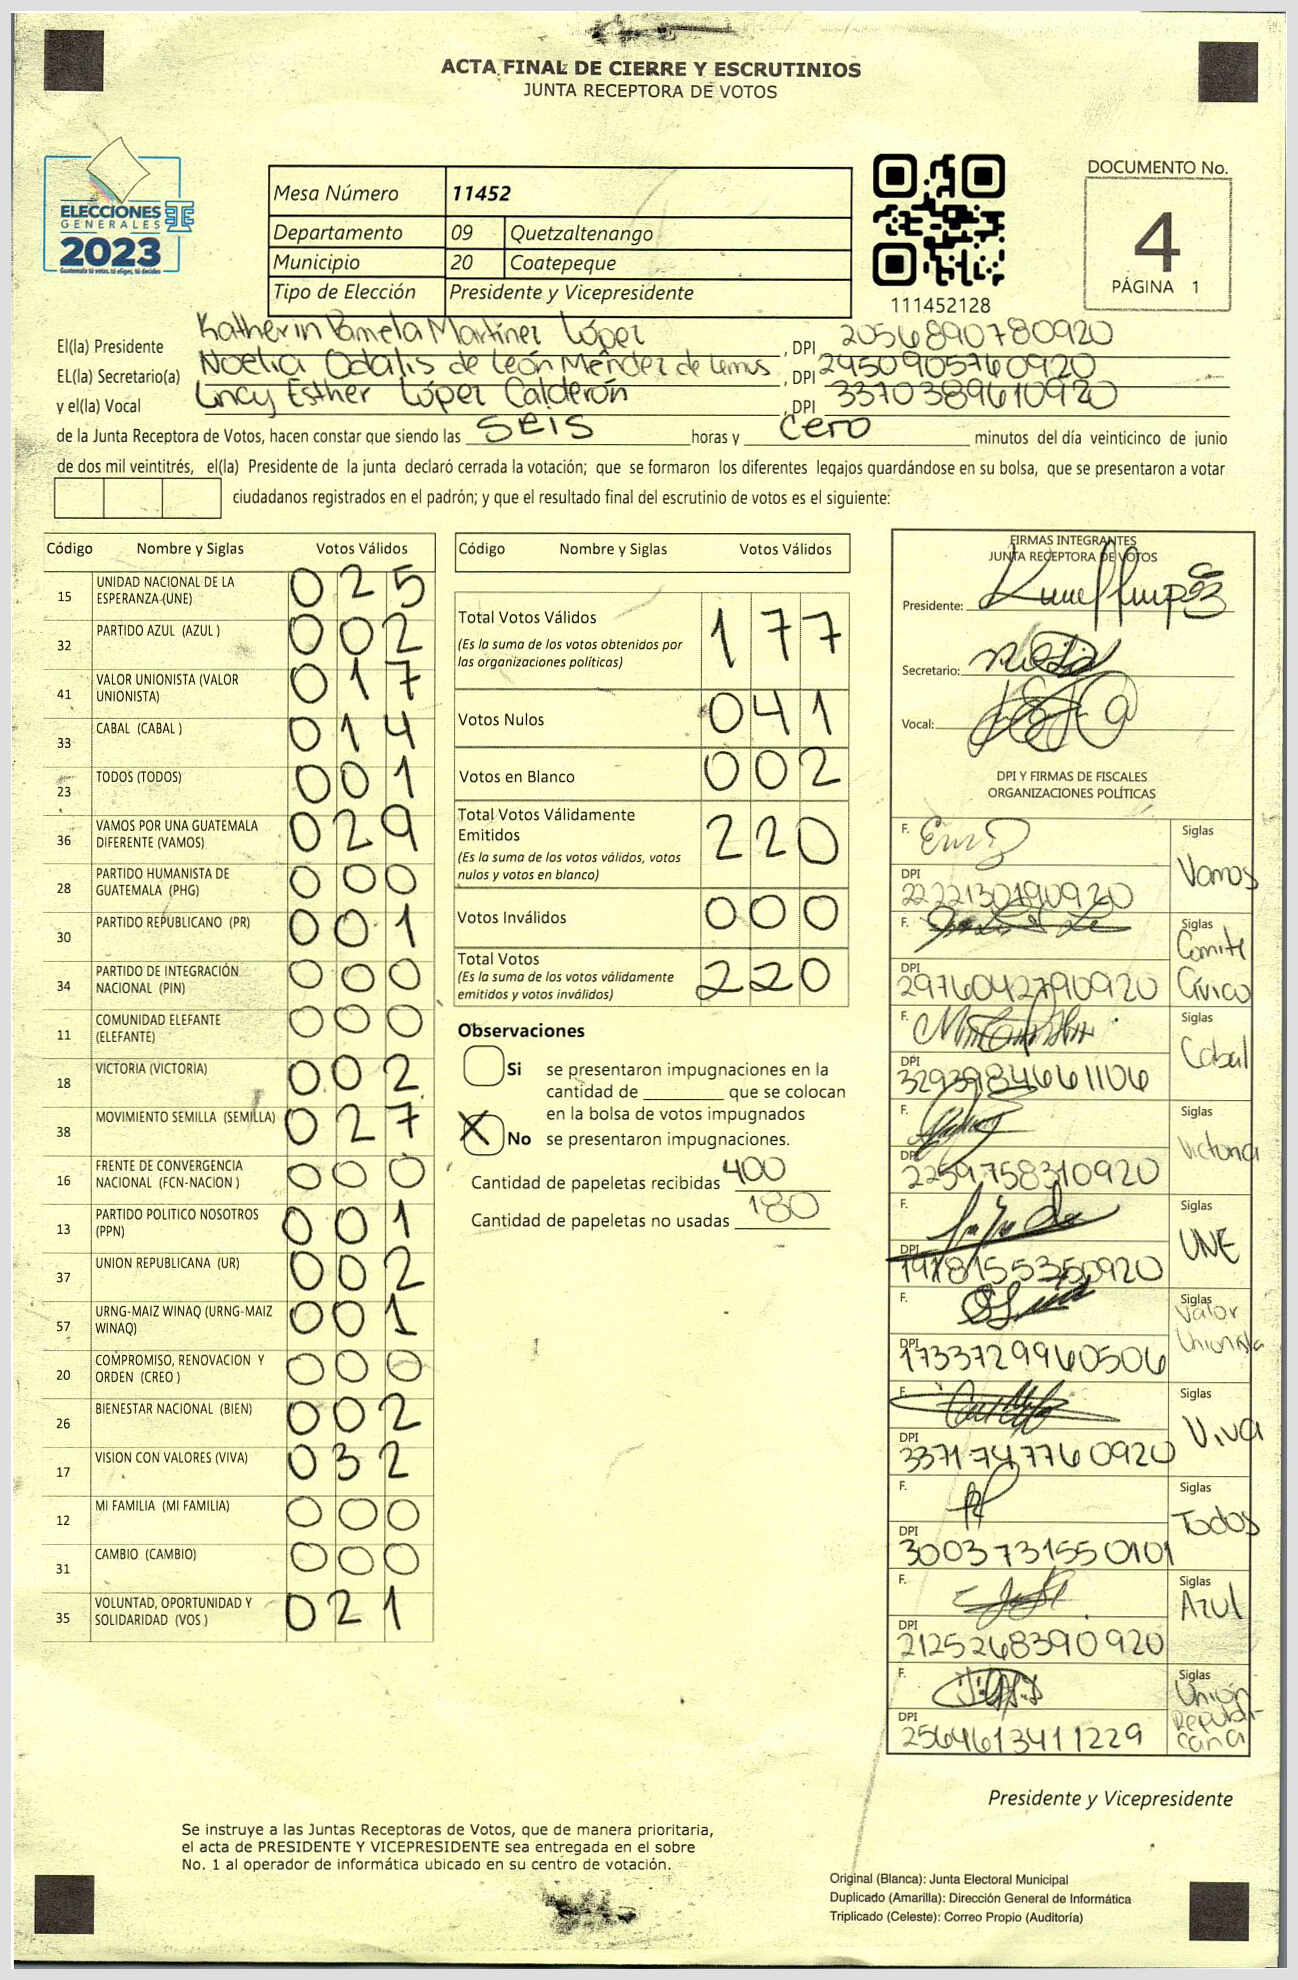 ACTA FINAL DE CIERRE Y ESCRUTINIOS
JUNTA RECEPTORA DE VOTOS
ELECCIONES
GENERALES
2023
Guatemala tú votas, tú eliges, tú decides
Mesa Número 11452
Departamento 09 Quetzaltenango
Municipio 20 Coatepeque
Tipo de Elección Presidente y Vicepresidente
111452128
DOCUMENTO No.
4
PÁGINA 1
El(la) Presidente Katherin Pamela Martínez López, DPI 2056890780920
EL(la) Secretario(a) Noelia Odalis de León Méndez de Lemus, DPI 2450905760920
y el(la) Vocal Lincy Esther López Calderón, DPI 3370389610920
de la Junta Receptora de Votos, hacen constar que siendo las SEIS horas y cero minutos del día veinticinco de junio
de dos mil veintitrés, el(la) Presidente de la junta declaró cerrada la votación; que se formaron los diferentes legajos guardándose en su bolsa, que se presentaron a votar
ciudadanos registrados en el padrón; y que el resultado final del escrutinio de votos es el siguiente:
Código Nombre y Siglas Votos Válidos
15 UNIDAD NACIONAL DE LA ESPERANZA (UNE) 025
32 PARTIDO AZUL (AZUL ) 002
41 VALOR UNIONISTA (VALOR UNIONISTA) 017
33 CABAL (CABAL ) 014
23 TODOS (TODOS) 001
36 VAMOS POR UNA GUATEMALA DIFERENTE (VAMOS) 029
28 PARTIDO HUMANISTA DE GUATEMALA (PHG) 000
30 PARTIDO REPUBLICANO (PR) 001
34 PARTIDO DE INTEGRACIÓN NACIONAL (PIN) 000
11 COMUNIDAD ELEFANTE (ELEFANTE) 000
18 VICTORIA (VICTORIA) 002
38 MOVIMIENTO SEMILLA (SEMILLA) 027
16 FRENTE DE CONVERGENCIA NACIONAL (FCN-NACION ) 000
13 PARTIDO POLITICO NOSOTROS (PPN) 001
37 UNION REPUBLICANA (UR) 002
57 URNG-MAIZ WINAQ (URNG-MAIZ WINAQ) 001
20 COMPROMISO, RENOVACION Y ORDEN (CREO ) 000
26 BIENESTAR NACIONAL (BIEN) 002
17 VISION CON VALORES (VIVA) 032
12 MI FAMILIA (MI FAMILIA) 000
31 CAMBIO (CAMBIO) 000
35 VOLUNTAD, OPORTUNIDAD Y SOLIDARIDAD (VOS ) 021
Código Nombre y Siglas Votos Válidos
Total Votos Válidos 177
(Es la suma de los votos obtenidos por
las organizaciones políticas)
Votos Nulos 041
Votos en Blanco 002
Total Votos Válidamente
Emitidos 220
(Es la suma de los votos válidos, votos
nulos y votos en blanco)
Votos Inválidos 000
Total Votos 220
(Es la suma de los votos válidamente
emitidos y votos inválidos)
Observaciones
Si se presentaron impugnaciones en la
cantidad de ________ que se colocan
en la bolsa de votos impugnados
X No se presentaron impugnaciones.
Cantidad de papeletas recibidas 400
Cantidad de papeletas no usadas 180
FIRMAS INTEGRANTES
JUNTA RECEPTORA DE VOTOS
Presidente:
Secretario:
Vocal:
DPI Y FIRMAS DE FISCALES
ORGANIZACIONES POLÍTICAS
F. Siglas Vamos
DPI 2222130190920
F. Siglas Comité Cívico
DPI 2976042790920
F. Siglas Cabal
DPI 3293984661106
F. Siglas Victoria
DPI 2259758310920
F. Siglas UNE
DPI
F. Siglas Valor Unionista
DPI 1733729960506
F. Siglas Viva
DPI 3371747760920
F. Siglas Todos
DPI 3003731550101
F. Siglas Azul
DPI 2125268390920
F. Siglas Unión Republicana
DPI 2564613411229
Presidente y Vicepresidente
Se instruye a las Juntas Receptoras de Votos, que de manera prioritaria,
el acta de PRESIDENTE Y VICEPRESIDENTE sea entregada en el sobre
No. 1 al operador de informática ubicado en su centro de votación.
Original (Blanca): Junta Electoral Municipal
Duplicado (Amarilla): Dirección General de Informática
Triplicado (Celeste): Correo Propio (Auditoría)